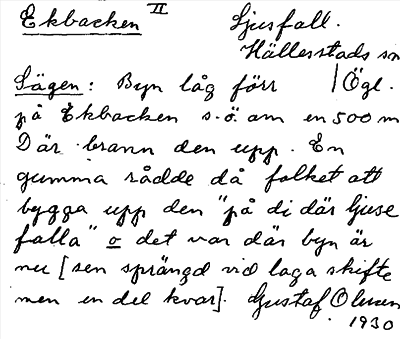 Ekbacken II Ljusfall.
Hällerstads sn
Sägen: Byn låg förr | Ögl.
på Ekbacken s.ö. om en 500 m
Där brann den upp. En
gumma rådde då folket att
bygga upp den "på di där ljuse
falla" o det var där byn är
nu [sen sprängd vid laga skifte
men en del kvar]. Gustaf Olsson
1930